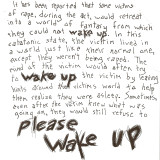 it has been reported that some victims
of rape, during the act, would retreat
into a world of fantasy from which
they could not wake up. In this
catatonic state, the victim lived in
a world just like their normal one,
except they weren't being raped. The
mind of the victim would often try
to wake up the victim by leaving
hints around their victims world to help
them realize they were asleep. Sometimes,
even after the victim knew what was
going on, they would still refuse to
please
wake up